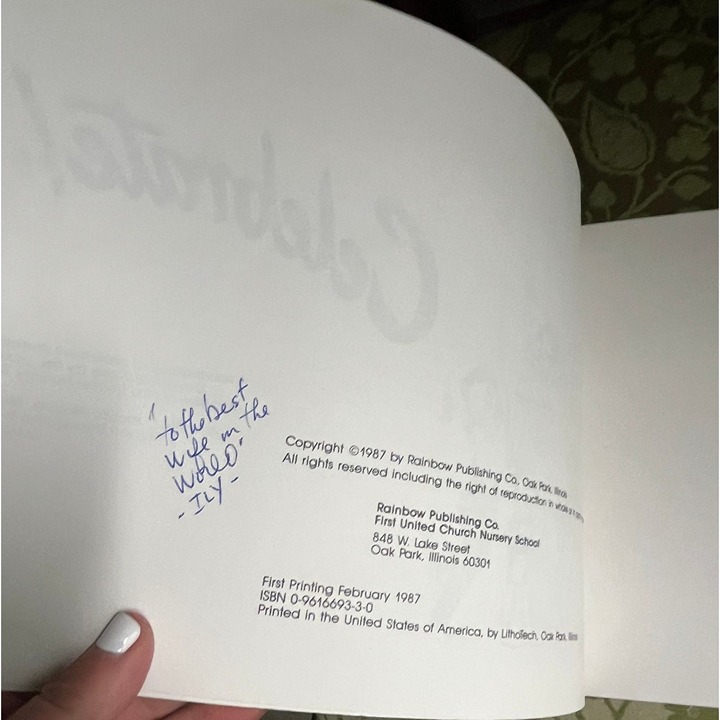 Celebrate!
"to the best
wife in the
world"
- ILY -
Copyright ©1987 by Rainbow Publishing Co., Oak Park, Illinois
All rights reserved including the right of reproduction in whole or in
Rainbow Publishing Co.
First United Church Nursery School
848 W. Lake Street
Oak Park, Illinois 60301
First Printing February 1987
ISBN 0-9616693-3-0
Printed in the United States of America, by LithoTech, Oak Park, Illinois